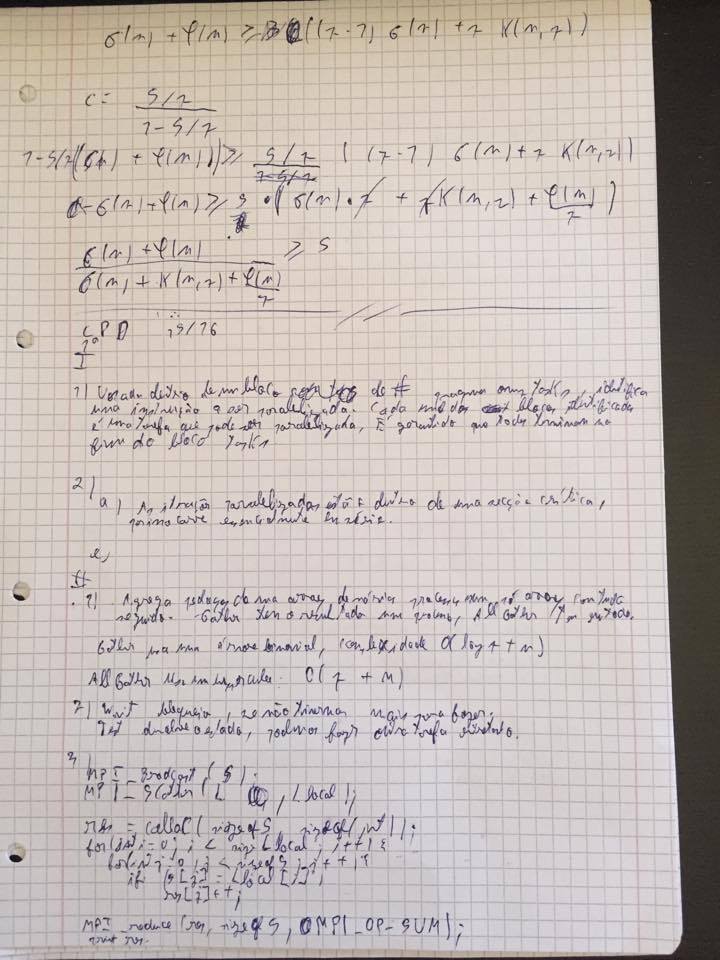 σ(n) + φ(n) ≥ ((7-7) σ(7) + 7 K(n,7))
c = 5/7
7-5/7
7-5/7 (σ(n) + φ(n)) ≥ 5/7 ( (7-7) σ(n) + 7 K(n,7))
σ(n) + φ(n) ≥ 5 · ( σ(n) · 7 + 7 K(n,7) + φ(n)/7 )
σ(n) + φ(n) ≥ 5
σ(n) + K(n,7) + φ(n)/7
CPD 75/76
I
1) Usado dentro de um bloco de # pragma omp tasks, identifica
uma instrução a ser paralelizada. Cada um dos blocos identificados
é uma tarefa que pode ser paralelizada, É garantido que todas terminam no
fim do bloco tasks
2)
a) As iterações paralelizadas estão dentro de uma secção crítica,
essencialmente em série.
II
1) Agrega pedaços de uma array de vários processos num só array
seguido. Gather tem o resultado num processo, AllGather tem em todos.
Gather usa uma árvore binomial, complexidade O(log 7 + n)
AllGather O(7 + n)
2) Wait bloqueia, se não tivermos mais para fazer.
Test devolve o estado, podemos fazer outra tarefa entretanto.
3)
MPI_Brodcast(S);
MPI_Scather(L , Llocal);
res = calloc( sizeof S sizeof(int));
for(int i=0; i < size Llocal; i++){
for(int j=0; j < sizeof S; j++){
if (S[j] = Llocal[i];
res[j]++;
MPI_reduce(res, sizeof S, MPI_OP_SUM);
print res.